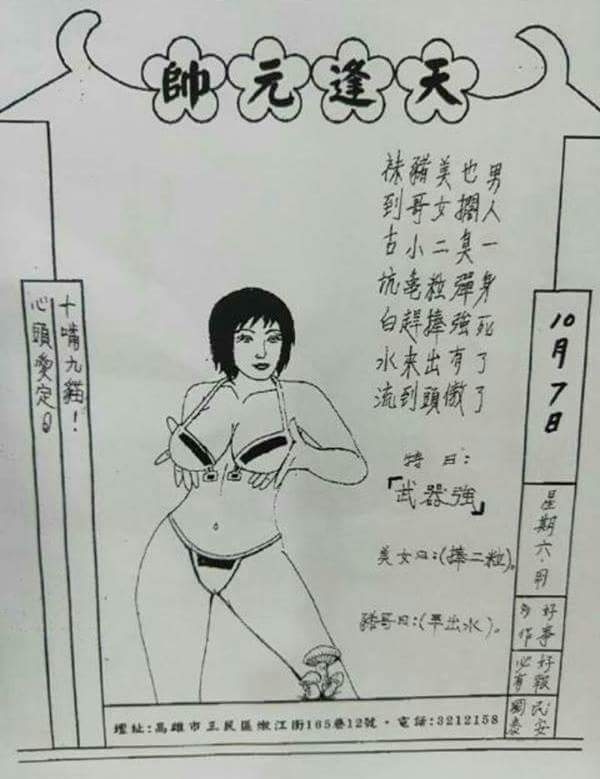 天逢元帥
男人一身死了了
也擱臭彈強有傲
美女二粒捧出頭
豬哥小亀趕來到
袜到古坑白水流
特曰：
「武器強」
美女曰：(捧二粒)。
豬哥曰：(早出水)。
10月7日
星期六.用
好事
多作
好報
必有
民安
國泰
十嘴九貓！
心頭愛定。
壇址:高雄市三民區嫩江街165巷12號・電話:3212158